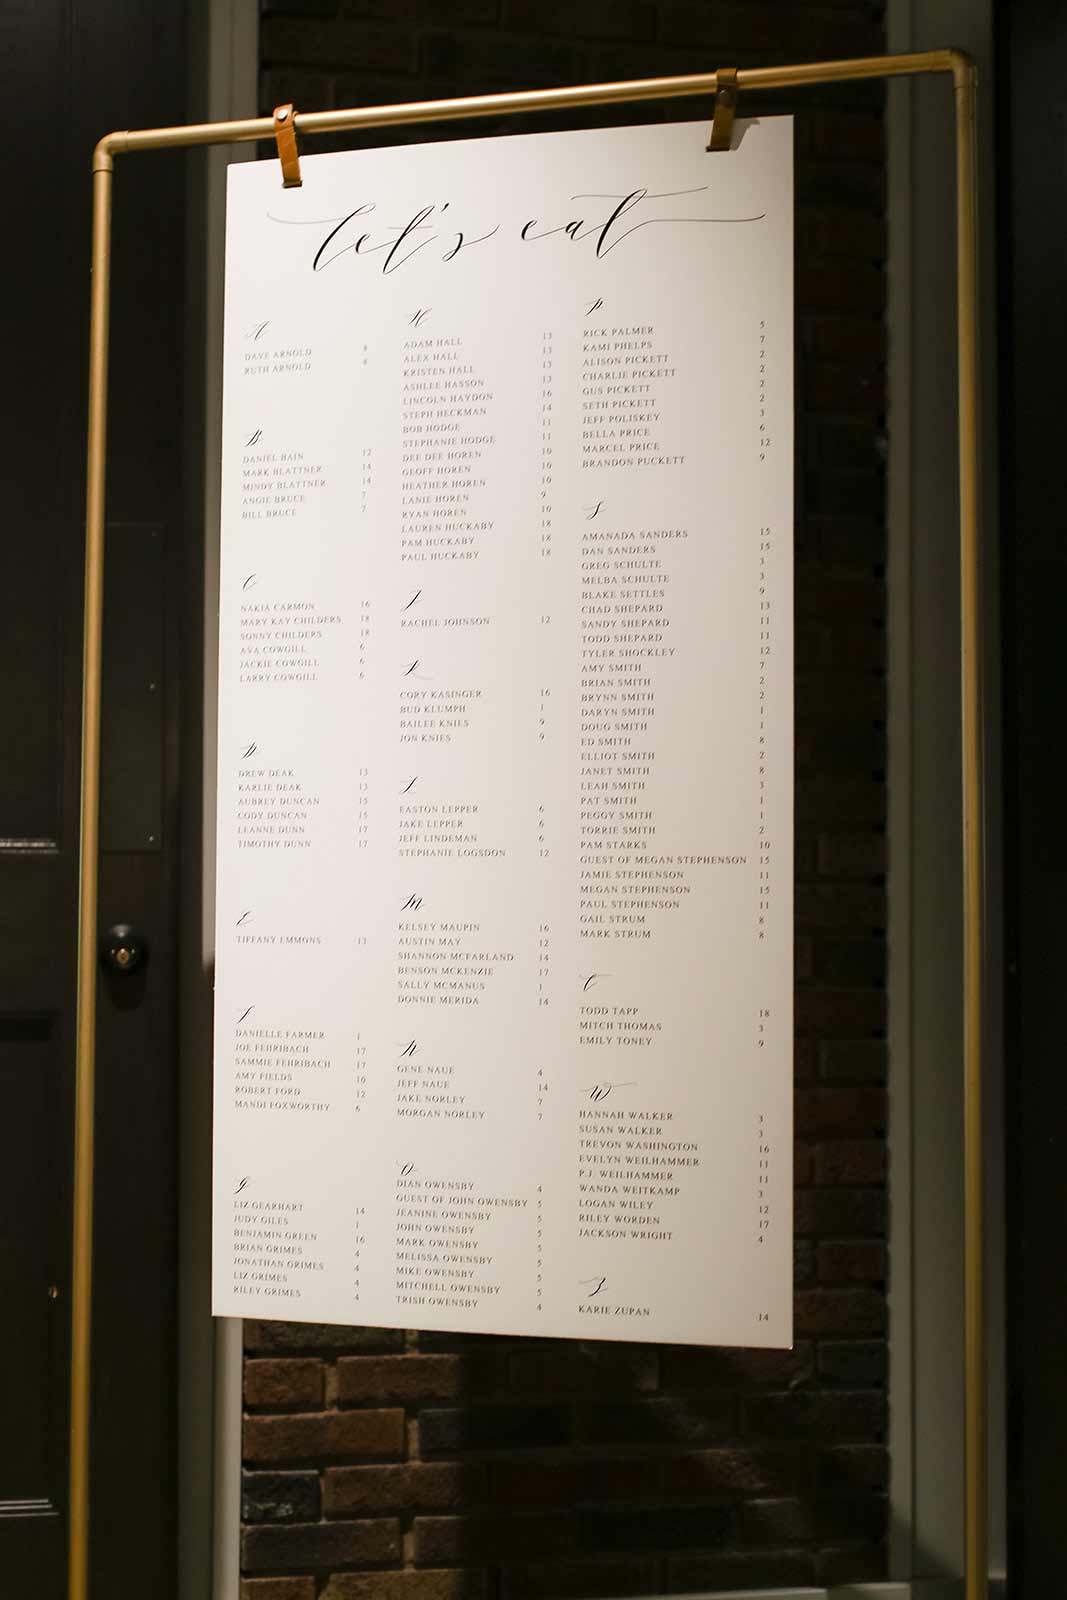 let's eat
A
DAVE ARNOLD 8
RUTH ARNOLD 8
B
DANIEL BAIN 12
MARK BLATTNER 14
MINDY BLATTNER 14
ANGIE BRUCE 7
BILL BRUCE 7
C
NAKIA CARMON 16
MARY KAY CHILDERS 18
SONNY CHILDERS 18
AVA COWGILL 6
JACKIE COWGILL 6
LARRY COWGILL 6
D
DREW DEAK 13
KARLIE DEAK 13
AUBREY DUNCAN 15
CODY DUNCAN 15
LEANNE DUNN 17
TIMOTHY DUNN 17
E
TIFFANY EMMONS 13
F
DANIELLE FARMER 1
JOE FEHRIBACH 17
SAMMIE FEHRIBACH 17
AMY FIELDS 10
ROBERT FORD 12
MANDI FOXWORTHY 6
G
LIZ GEARHART 14
JUDY GILES 1
BENJAMIN GREEN 16
BRIAN GRIMES 4
JONATHAN GRIMES 4
LIZ GRIMES 4
RILEY GRIMES 4
H
ADAM HALL 13
ALEX HALL 13
KRISTEN HALL 13
ASHLEE HASSON 13
LINCOLN HAYDON 16
STEPH HECKMAN 14
BOB HODGE 11
STEPHANIE HODGE 11
DEE DEE HOREN 10
GEOFF HOREN 10
HEATHER HOREN 10
LANIE HOREN 9
RYAN HOREN 10
LAUREN HUCKABY 18
PAM HUCKABY 18
PAUL HUCKABY 18
J
RACHEL JOHNSON 12
K
CORY KASINGER 16
BUD KLUMPH 1
BAILEE KNIES 9
JON KNIES 9
L
EASTON LEPPER 6
JAKE LEPPER 6
JEFF LINDEMAN 6
STEPHANIE LOGSDON 12
M
KELSEY MAUPIN 16
AUSTIN MAY 12
SHANNON MCFARLAND 14
BENSON MCKENZIE 17
SALLY MCMANUS 1
DONNIE MERIDA 14
N
GENE NAUE 4
JEFF NAUE 14
JAKE NORLEY 7
MORGAN NORLEY 7
O
DIAN OWENSBY 4
GUEST OF JOHN OWENSBY 5
JEANINE OWENSBY 5
JOHN OWENSBY 5
MARK OWENSBY 5
MELISSA OWENSBY 5
MIKE OWENSBY 5
MITCHELL OWENSBY 5
TRISH OWENSBY 4
P
RICK PALMER 5
KAMI PHELPS 7
ALISON PICKETT 2
CHARLIE PICKETT 2
GUS PICKETT 2
SETH PICKETT 2
JEFF POLISKEY 3
BELLA PRICE 6
MARCEL PRICE 12
BRANDON PUCKETT 9
S
AMANADA SANDERS 15
DAN SANDERS 15
GREG SCHULTE 3
MELBA SCHULTE 3
BLAKE SETTLES 9
CHAD SHEPARD 13
SANDY SHEPARD 11
TODD SHEPARD 11
TYLER SHOCKLEY 12
AMY SMITH 7
BRIAN SMITH 2
BRYNN SMITH 2
DARYN SMITH 1
DOUG SMITH 1
ED SMITH 8
ELLIOT SMITH 2
JANET SMITH 8
LEAH SMITH 3
PAT SMITH 1
PEGGY SMITH 1
TORRIE SMITH 2
PAM STARKS 10
GUEST OF MEGAN STEPHENSON 15
JAMIE STEPHENSON 11
MEGAN STEPHENSON 15
PAUL STEPHENSON 11
GAIL STRUM 8
MARK STRUM 8
T
TODD TAPP 18
MITCH THOMAS 3
EMILY TONEY 9
W
HANNAH WALKER 3
SUSAN WALKER 3
TREVON WASHINGTON 16
EVELYN WEILHAMMER 11
P.J. WEILHAMMER 11
WANDA WEITKAMP 3
LOGAN WILEY 12
RILEY WORDEN 17
JACKSON WRIGHT 4
Z
KARIE ZUPAN 14